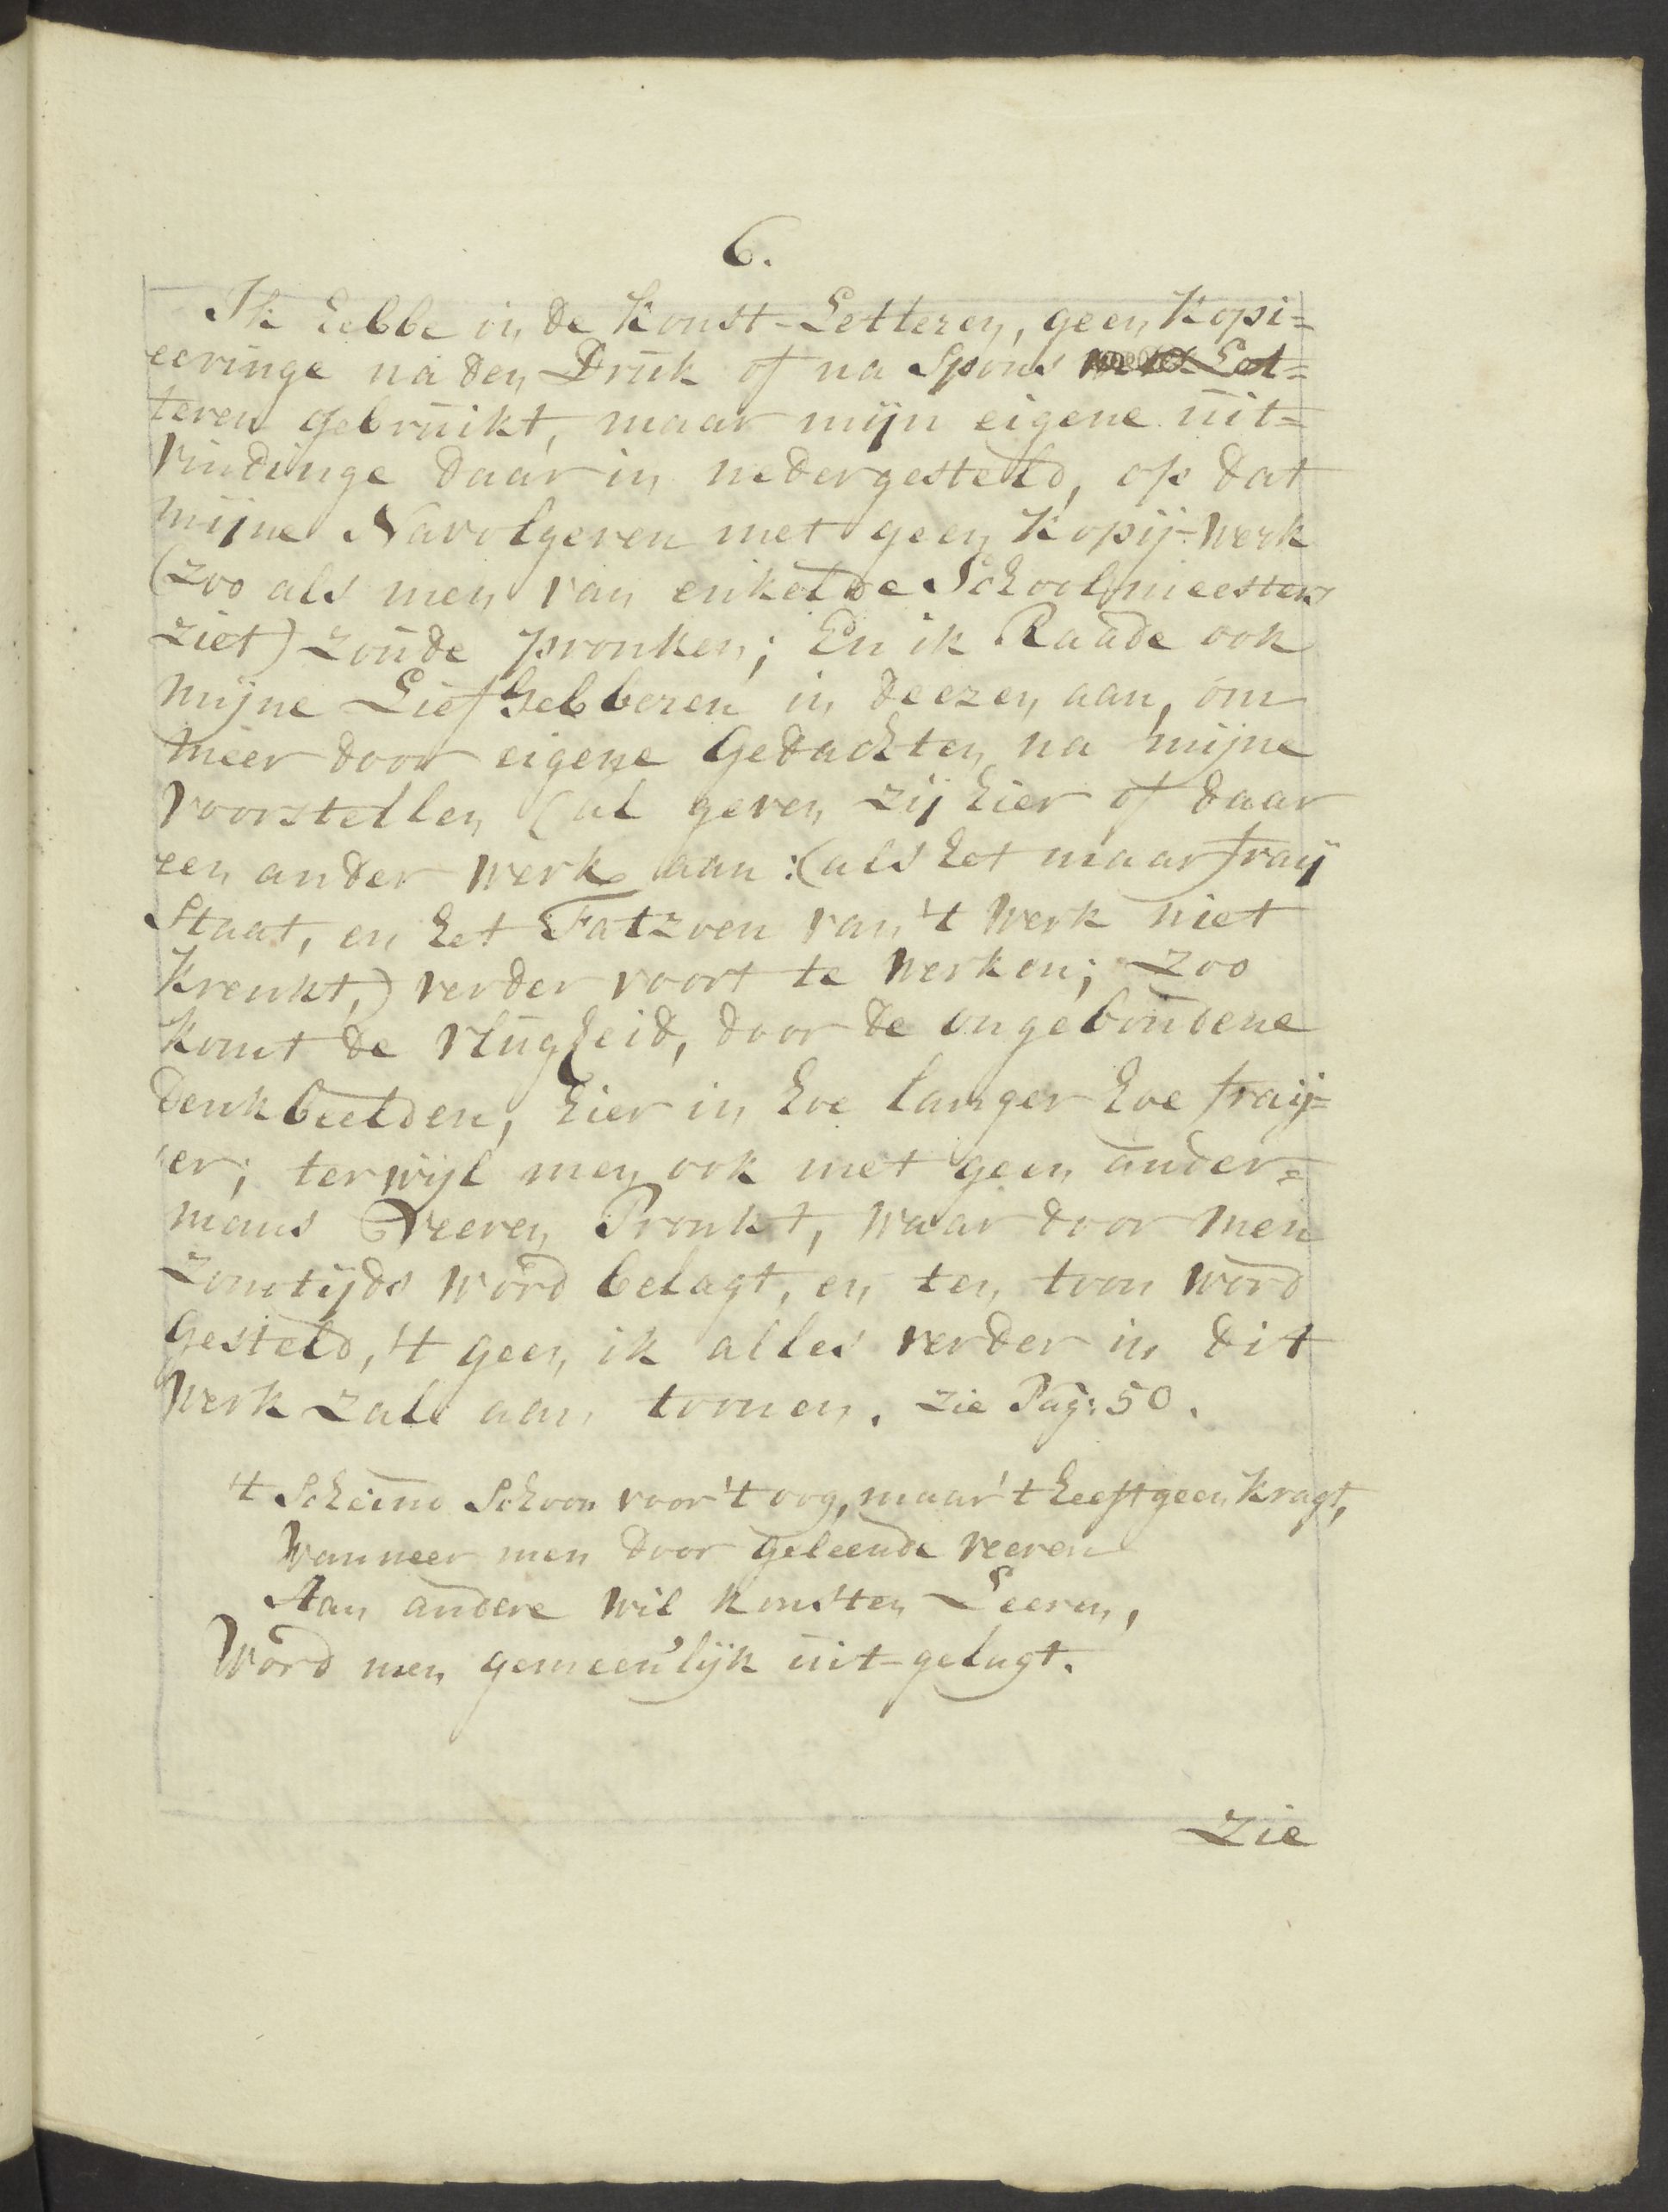 6.
Ik hebbe in de Konst-Letteren, geen Kopi=
eeringe na den Druk of na Spons Let=
teren gebruikt, maar mijn eigene uit=
vindinge daar in nedergesteld, op dat
mijne Navolgeren met geen Kopij-Werk
(zoo als men van enkelde Schoolmeesters
ziet) zoude pronken; En ik Raade ook
mijne Liefhebberen in deezen aan, om
meer door eigene Gedachten na mijne
voorstellen (al geven zij hier of daar
een ander werk aan:(als het maar fraij
Staat, en het Fatzoen van 't Werk niet
Krenkt,) verder voort te Werken; Zoo
komt de vlugheid, door de ongeboudene
Denkbeelden, hier in hoe langer hoe fraij=
er; terwijl men ook met geen ander=
mans Veeren Pronkt, waar door men
zomtijds word belagt, en ten toon word
Gesteld, 't geen ik alles verder in dit
Werk zal aan toonen. Zie Pag: 50.
't Scheind Schoon voor 't oog, maar 't heeft geen Kragt,
Wanneer men door geleende veeren
Aan andere wil konsten Leeren,
Word men gemeen'lijk uit-gelagt.
Zie